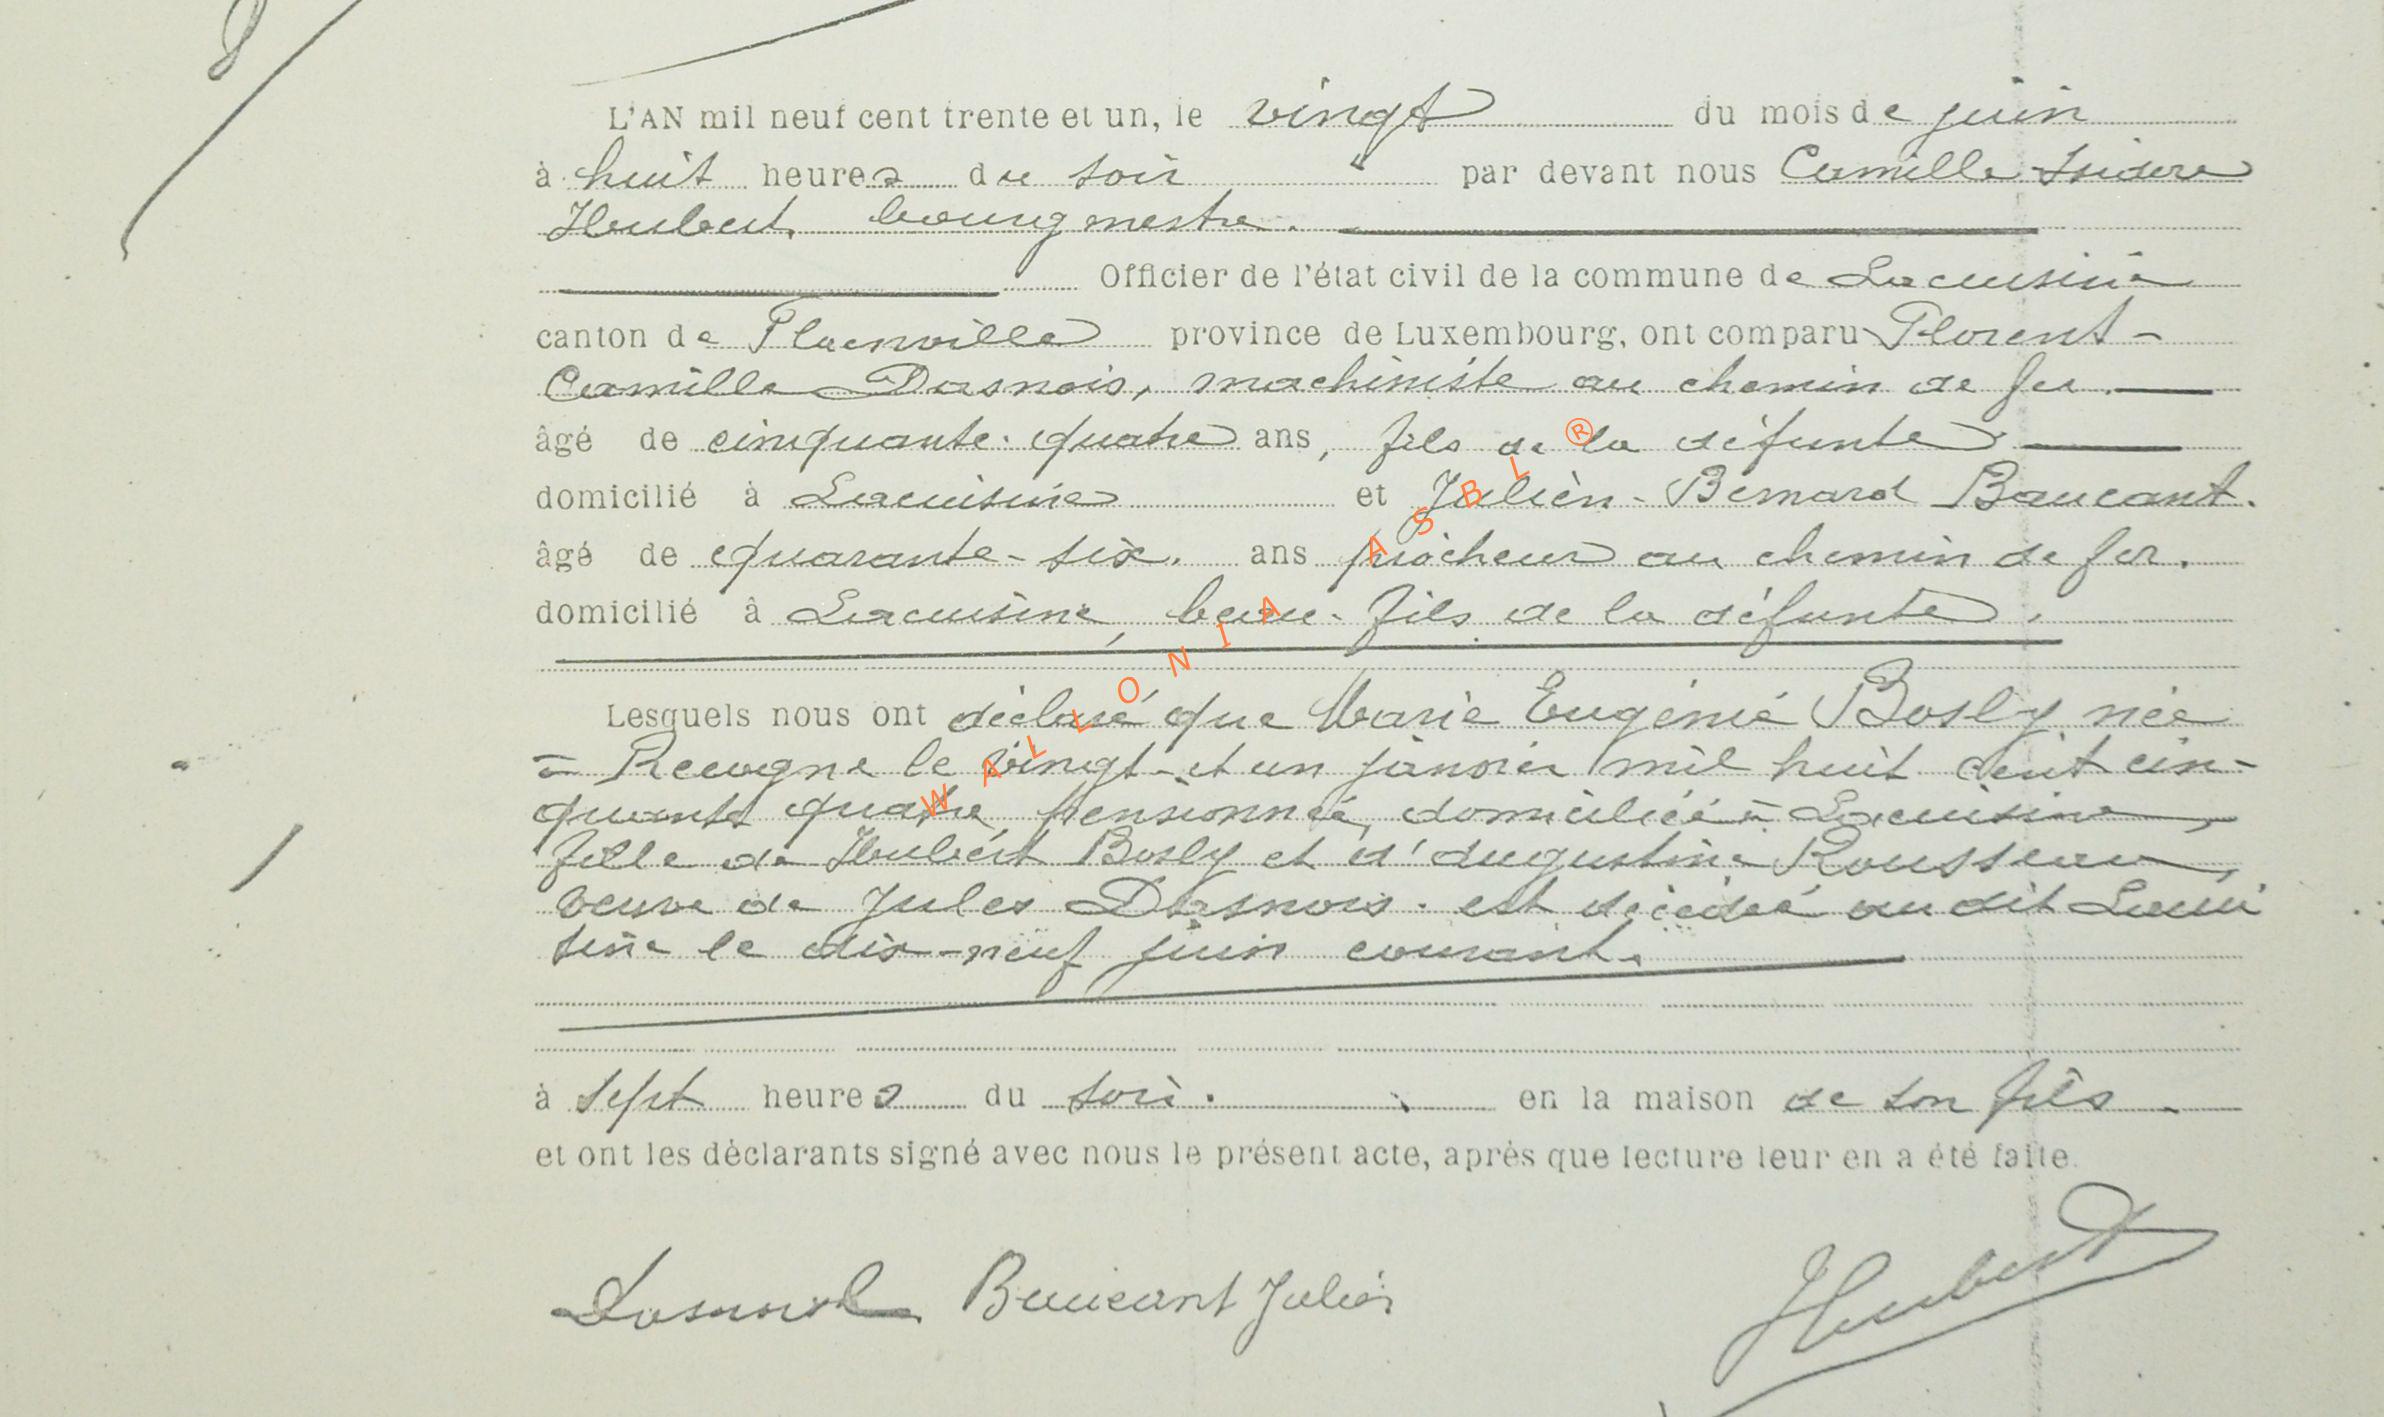 L'AN mil neuf cent trente et un, le vingt du mois de juin
à huit heures du soir par devant nous Camille Isidore
Hubert, bourgmestre.
Officier de l'état civil de la commune de Lacuisine
canton de Florenville province de Luxembourg, ont comparu Florent-
Camille Dasnois, machiniste au chemin de fer.
âgé de cinquante-quatre ans, fils de la défunte
domicilié à Lacuisine et Julien-Bernard Baucant.
âgé de quarante-six. ans piocheur au chemin de fer.
domicilié à Lacuisine, beau-fils de la défunte.
Lesquels nous ont déclaré que Marie Eugénie Bosly née
à Recogne le vingt-et un janvier mil huit cent cin-
quante quatre, pensionnée, domiciliée à Lacuisine,
fille de Hubert Bosly et d'Augustine Rousseau,
veuve de Jules Dasnois. est décédée au dit Lacui
sine le dix-neuf juin courant.
à sept heures du soir. en la maison de son fils
et ont les déclarants signé avec nous le présent acte, après que lecture leur en a été faite.
Baucant Julien Hubert
WALLONIA ASBL ®